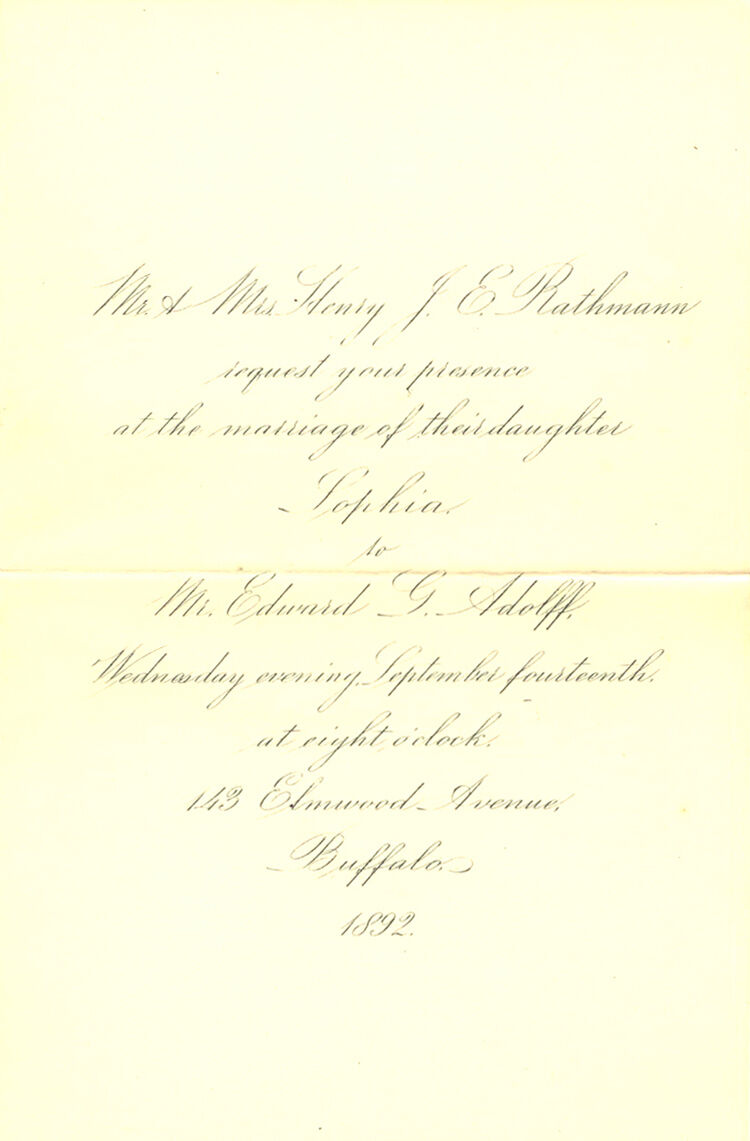 Mr. & Mrs. Henry J. E. Rathmann
request your presence
at the marriage of their daughter
Sophia
to
Mr. Edward G. Adolff,
Wednesday evening, September fourteenth,
at eight o'clock.
143 Elmwood Avenue,
Buffalo.
1892.